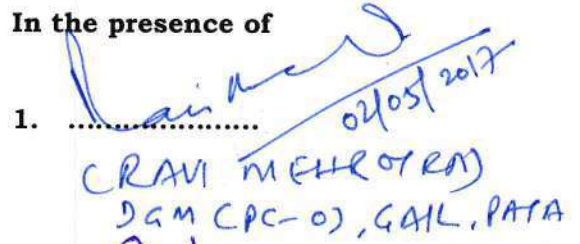 In the presence of
1. ....................
02/05/2017
(RAVI MEHROTRA)
DGM (PC-O), GAIL, PATA